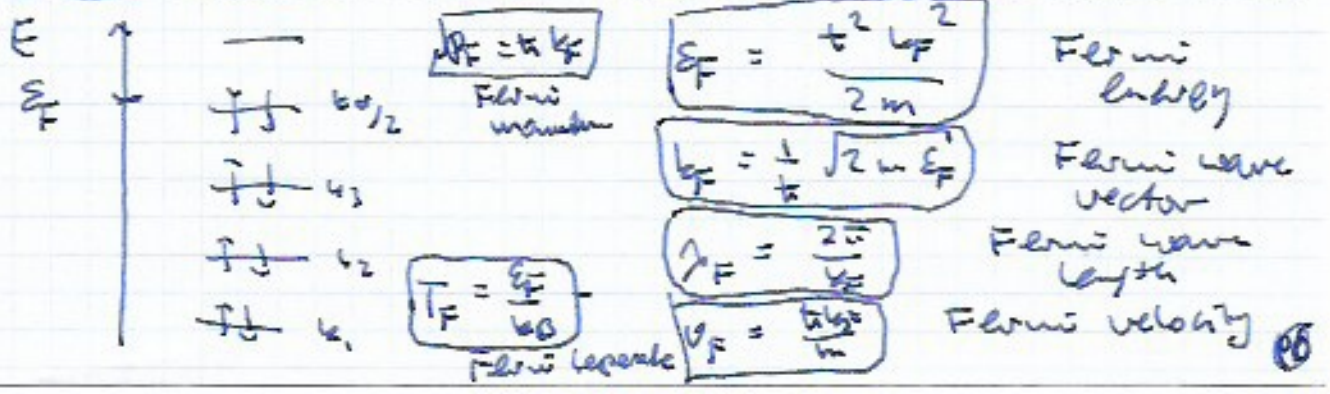 E
ε_F
k_{N/2}
k_3
k_2
k_1
p_F = ħ k_F
Fermi
momentum
T_F = ε_F / k_B
Fermi
ε_F = ħ² k_F² / 2m
Fermi
energy
k_F = 1/ħ √(2m ε_F)
Fermi wave
vector
λ_F = 2π / k_F
Fermi wave
length
v_F = ħ k_F / m
Fermi velocity